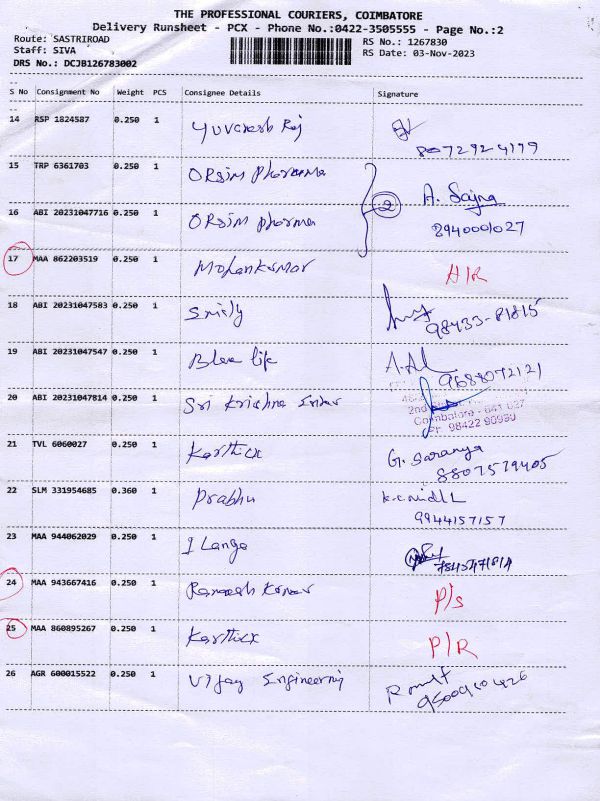 THE PROFESSIONAL COURIERS, COIMBATORE
Delivery Runsheet - PCX - Phone No.:0422-3505555 - Page No.:2
Route: SASTRIROAD RS No.: 1267830
Staff: SIVA RS Date: 03-Nov-2023
DRS No.: DCJB126783002
S No Consignment No Weight PCS Consignee Details Signature
14 RSP 1824587 0.250 1 Yuvanesh Raj
8072924199
15 TRP 6361703 0.250 1 ORSim Pharma
2 A. Sajna
16 ABI 20231047716 0.250 1 ORSim pharma 8940001027
17 MAA 862203519 0.250 1 Mohankumar A/R
18 ABI 20231047583 0.250 1 Smily
98433-81815
19 ABI 20231047547 0.250 1 Blue life
9688072121
20 ABI 20231047814 0.250 1 Sri Krishna
Coimbatore - 641 027
21 TVL 6060027 0.250 1 Karthick G. Saranya
8807579405
22 SLM 331954685 0.360 1 Prabhu
9944157157
23 MAA 944062029 0.250 1
24 MAA 943667416 0.250 1 Ramesh Kumar P/S
25 MAA 860895267 0.250 1 Karthick P/R
26 AGR 600015522 0.250 1 Vijay Engineering